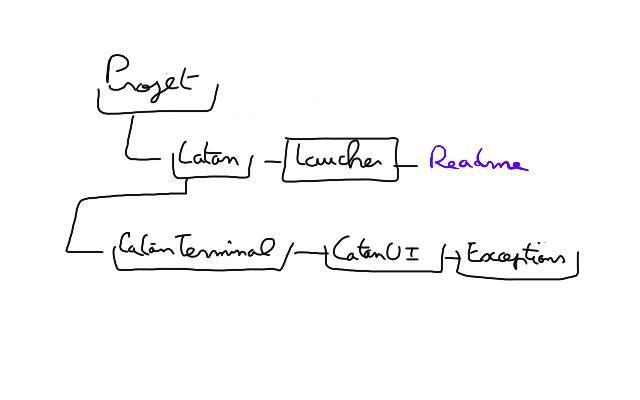 Projet
Catan Laucher Readme
CatanTerminal CatanUI Exceptions